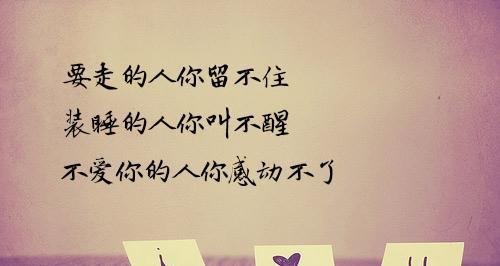 要走的人你留不住
装睡的人你叫不醒
不爱你的人你感动不了
i ♥ u